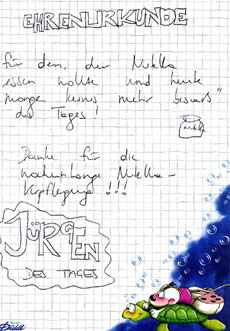 EHRENURKUNDE
für den, der Nutella
essen wollte und heute
morgen keines mehr
des Tages !
Nutella
Danke für die
Nutella-
Verpflegung !!!
JÜRGEN
DES TAGES
Diddl